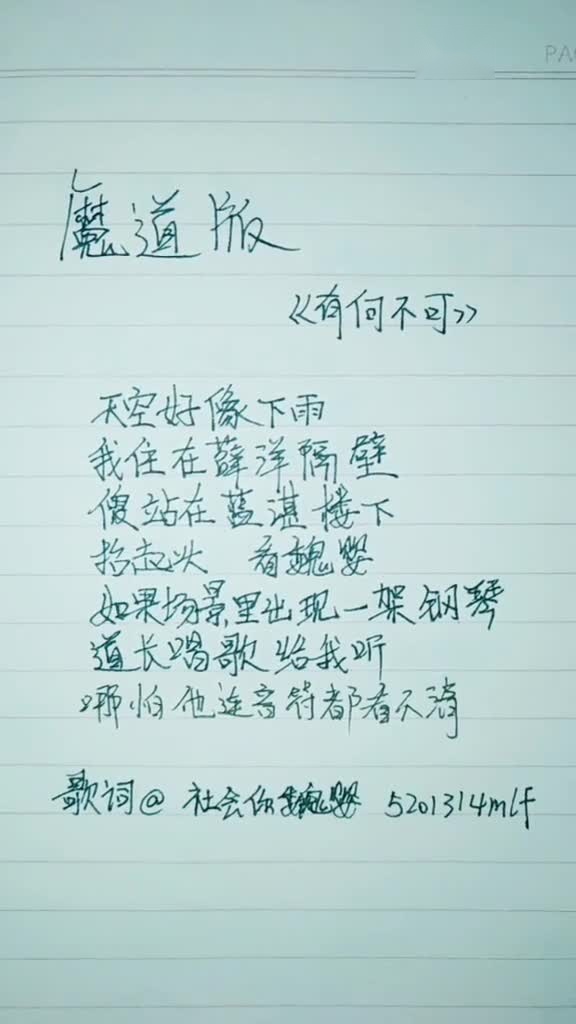 PA
魔道版
《有何不可》
天空好像下雨
我住在薛洋隔壁
傻站在蓝湛楼下
抬起头 看魏婴
如果场景里出现一架钢琴
道长唱歌给我听
哪怕他连音符都看不清
歌词@ 社会你魏婴 5201314mlf